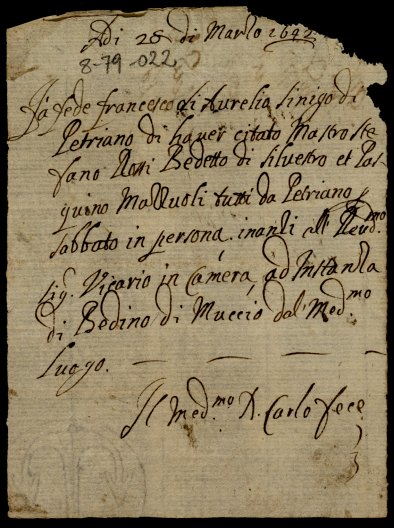 Adi 28 di Marzo 1692
8-79-022
Fà fede francesco di Aurelio Sinigo di
Petriano di haver citato Mastro Ste
fano Rossi Bedetto di Silvestro et Pas
quino Mazzuoli tutti da Petriano p
sabbato in persona inanzi all Rev.mo
Sig. Vicario in Camera, ad Instanza
di Bedino di Muccio dal med.mo
luogo. — — — —
Il med.mo D. Carlo fece